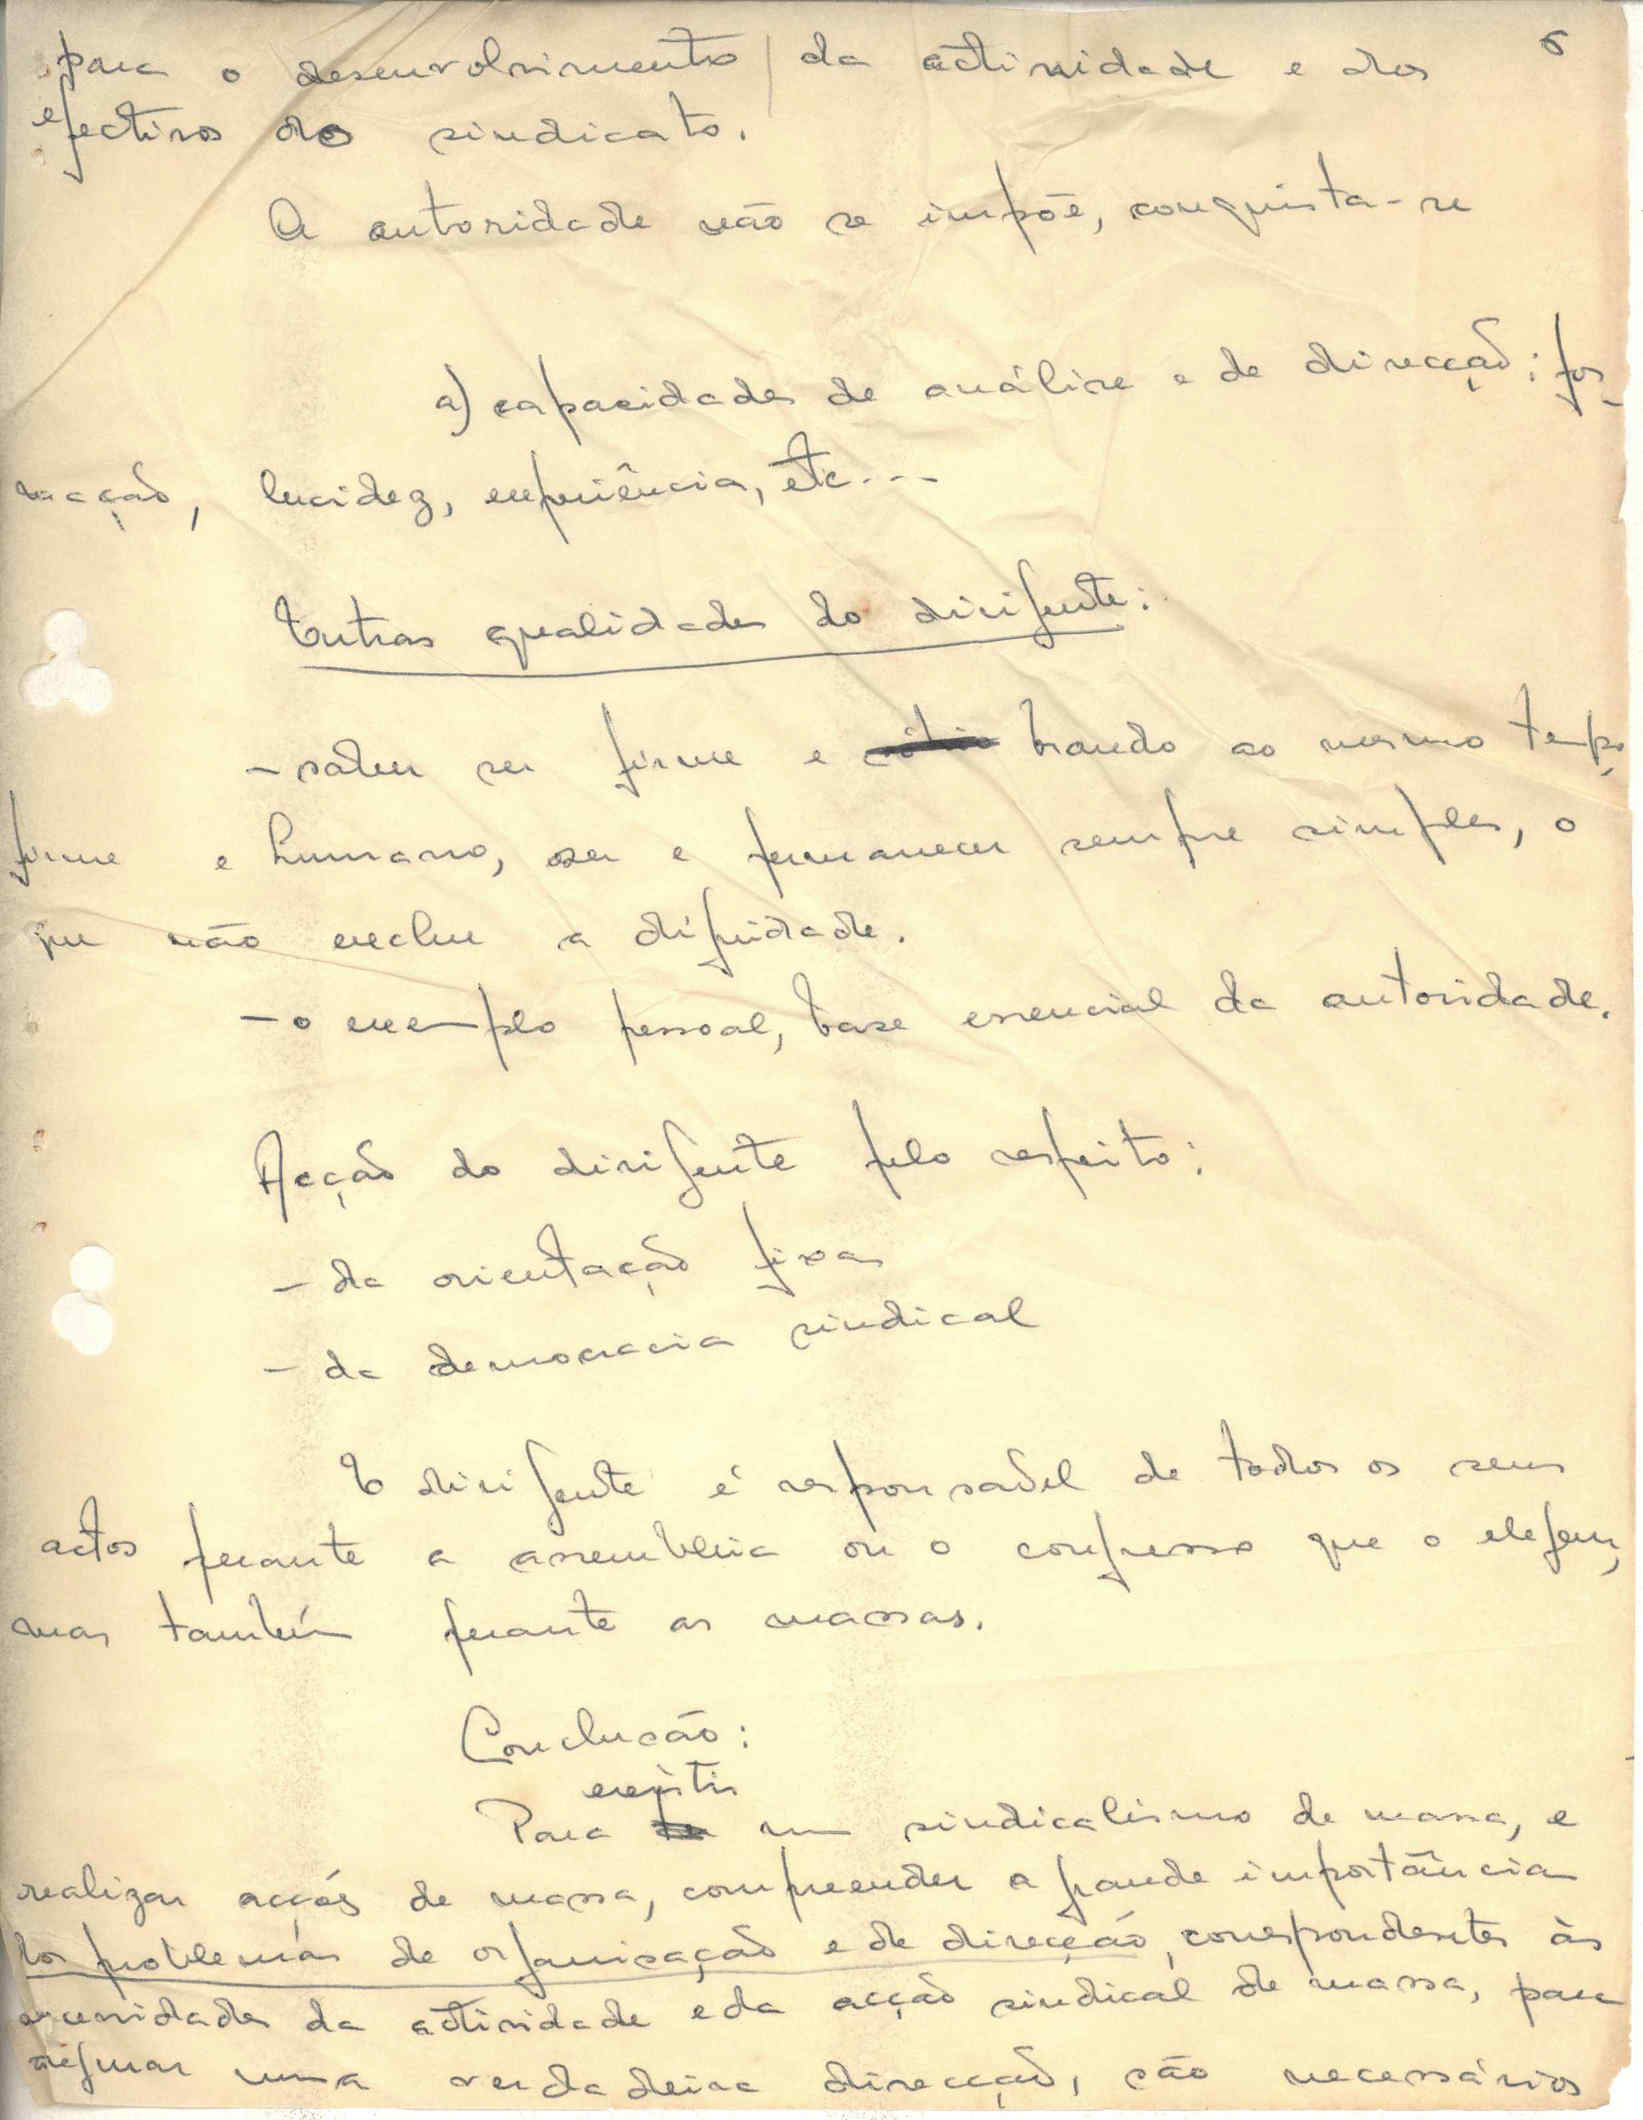 6
para o desenvolvimento da actividade e dos
efectivos do sindicato.
A autoridade não se impõe, conquista-se
a) capacidades de análise e de direcção: for-
mação, lucidez, experiência, etc...
Outras qualidades do dirigente:
- saber ser firme e brando ao mesmo tempo,
firme e humano, ser e permanecer sempre simples, o
que não exclue a dignidade.
- o exemplo pessoal, base essencial da autoridade.
Acção do dirigente pelo respeito:
- da orientação fixa
- da democracia sindical
O dirigente é responsável de todos os seus
actos perante a assembleia ou o congresso que o elegeu,
mas também perante as massas.
Conclusão:
existir
Para um sindicalismo de massa, e
realizar acções de massa, compreender a grande importância
dos problemas de organização e de direcção, correspondentes às
necessidades da actividade e da acção sindical de massa, para
uma verdadeira direcção, são necessários